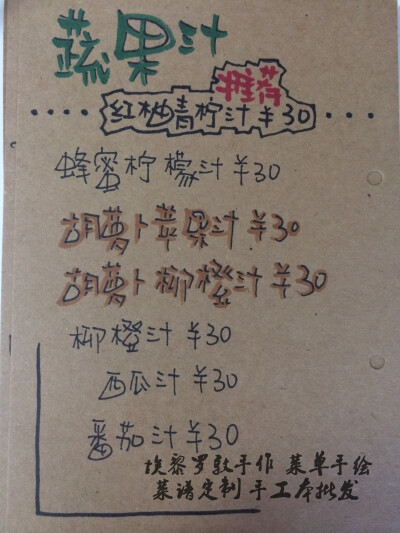 蔬果汁
推荐
红柚青柠汁¥30
蜂蜜柠檬汁¥30
胡萝卜苹果汁¥30
胡萝卜柳橙汁¥30
柳橙汁¥30
西瓜汁¥30
番茄汁¥30
埃黎罗敦手作 菜单手绘
菜谱定制 手工本批发